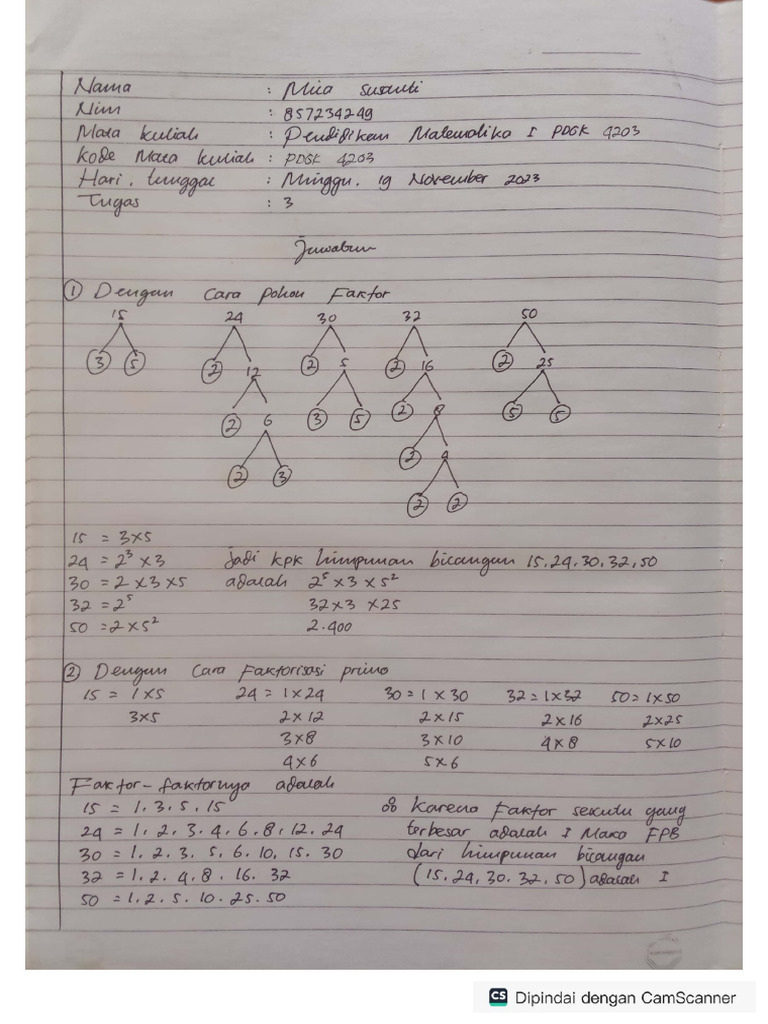 Nama : Mira Susanti
Nim : 857234249
Mata kuliah : Pendidikan Matematika I PDGK 4203
Kode Mata kuliah : PDGK 4203
Hari, tanggal : Minggu, 19 November 2023
Tugas : 3
Jawaban
① Dengan cara pohon Faktor
15 24 30 32 50
3 5 2 12 2 5 2 16 2 25
2 6 3 5 2 8 5 5
2 3 2 4
2 2
15 = 3x5
24 = 2³ x 3 Jadi KPK himpunan bilangan 15, 24, 30, 32, 50
30 = 2 x 3 x 5 adalah 2⁵ x 3 x 5²
32 = 2⁵ 32 x 3 x 25
50 = 2 x 5² 2.400
② Dengan cara Faktorisasi prima
15 = 1 x 5 24 = 1 x 24 30 = 1 x 30 32 = 1 x 32 50 = 1 x 50
3x5 2 x 12 2 x 15 2 x 16 2 x 25
3 x 8 3 x 10 4 x 8 5 x 10
4 x 6 5 x 6
Faktor-faktornya adalah
15 = 1. 3. 5. 15 ∴ Karena Faktor sekutu yang
24 = 1. 2. 3. 4. 6. 8. 12. 24 terbesar adalah 1 Maka FPB
30 = 1. 2. 3. 5. 6. 10. 15. 30 dari himpunan bilangan
32 = 1. 2. 4. 8. 16. 32 (15, 24, 30. 32, 50) adalah 1
50 = 1. 2. 5. 10. 25. 50
CS Dipindai dengan CamScanner